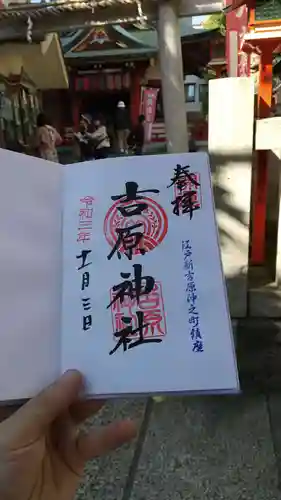 奉拝
江戸新吉原仲之町鎮座
吉原神社
令和三年
十一月三日